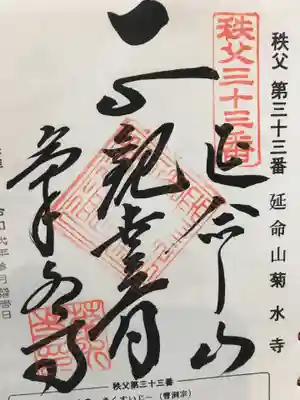 秩父 第三十三番 延命山菊水寺
秩父三十三番
延命山
正観世音
菊水寺
秩父第三十三番
くすいじ～（曹洞宗）